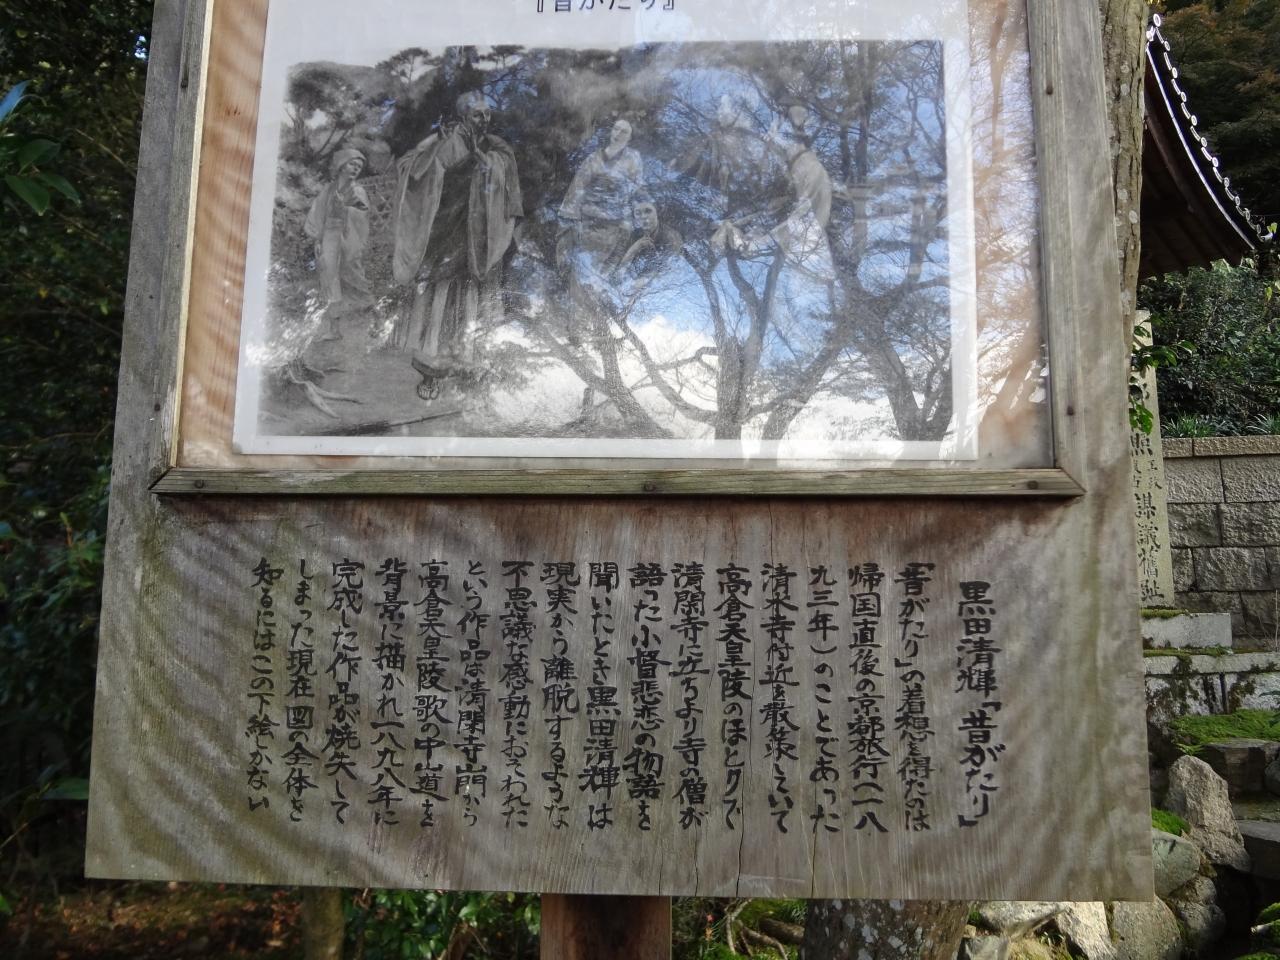 『昔がたり』
黒田清輝「昔がたり」
「昔がたり」の着想を得たのは
帰国直後の京都旅行(一八
九三年)のことであった
清水寺付近を散策していて
高倉天皇陵のほとりで
清閑寺に立ちより寺の僧が
語った小督悲恋の物語を
聞いたとき黒田清輝は
現実から離脱するような
不思議な感動におそわれた
という作品は清閑寺山門から
高倉天皇陵歌の中山道を
背景に描かれ一八九八年に
完成した作品が焼失して
しまった現在図の全体を
知るにはこの下絵しかない
謀議舊址